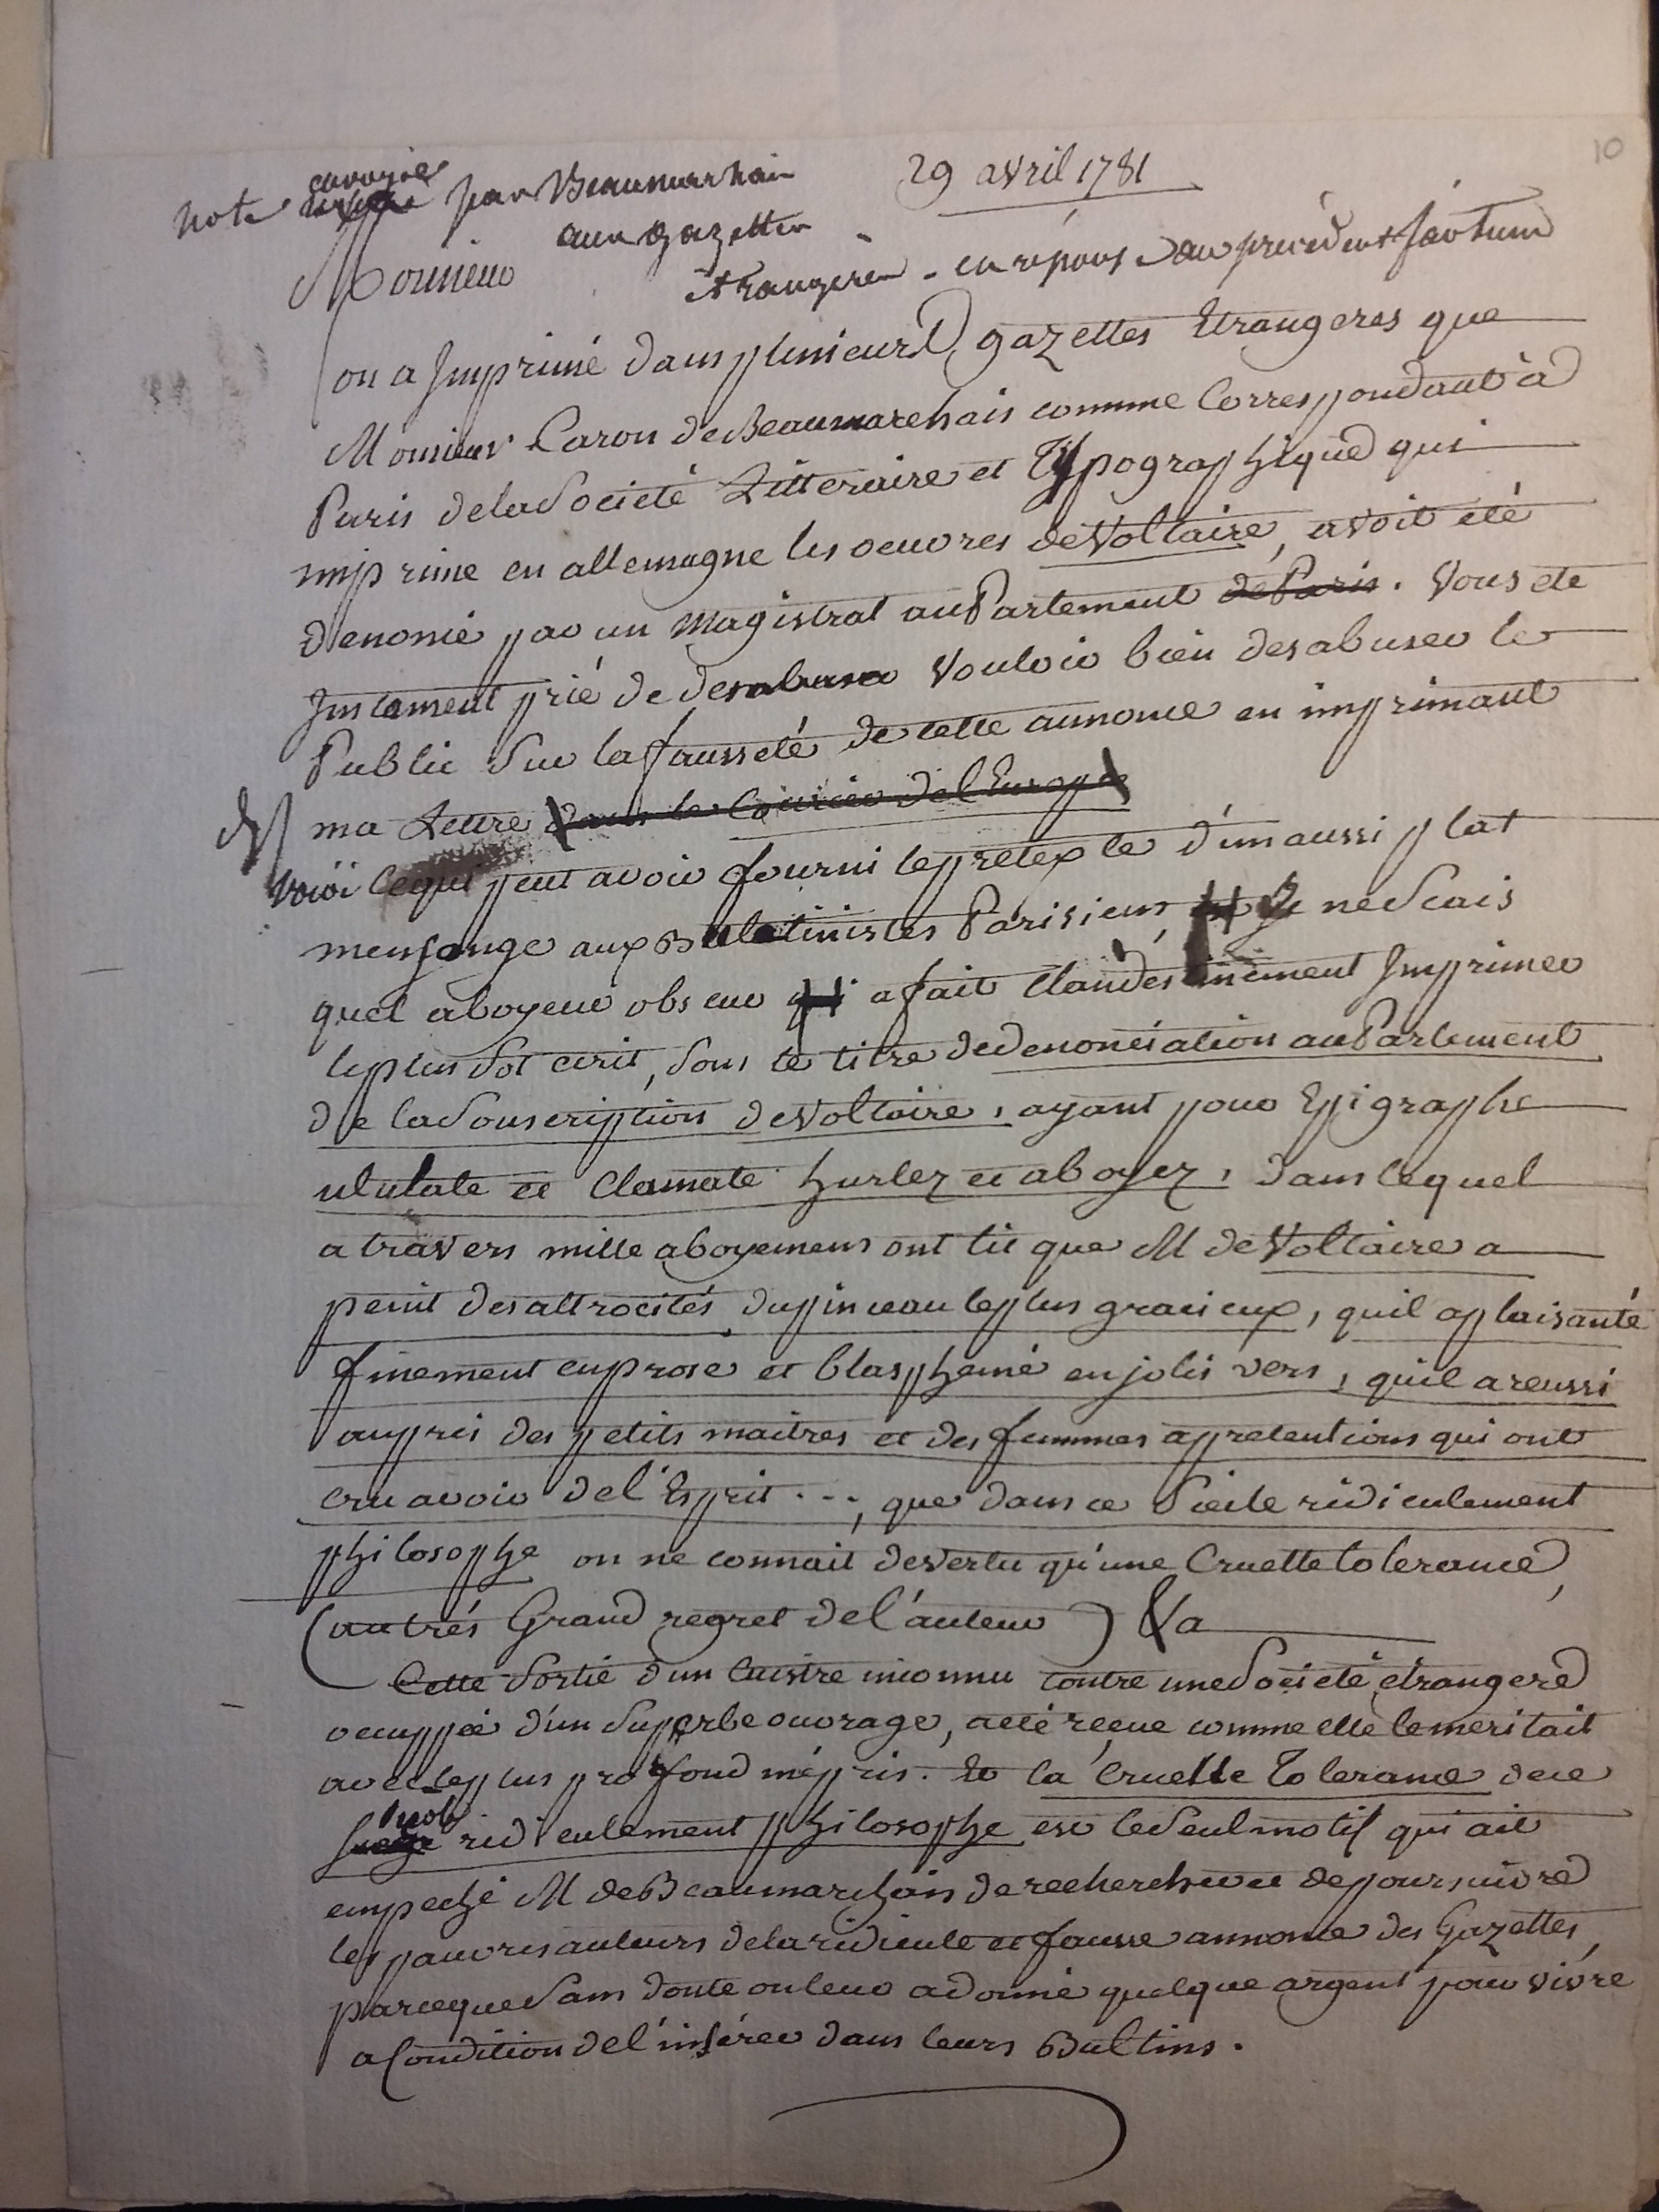 10
29 avril 1781
note envoyée par Beaumarchais
aux gazettes
étrangères - en réponse au précédent factum
Monsieur
on a Imprimé dans plusieurs gazettes Etrangeres que
Monsieur Caron de Beaumarchais comme Correspondant à
Paris de la Societé Litteraire et Typographique qui
imprime en allemagne les oeuvres de Voltaire, avoit eté
denoncé par un Magistrat au Parlement de Paris. Vous ete
Instament prié de desabuser Vouloir bien desabuser le
Public sur la fausseté de cette annonce en imprimant
ma Lettre dans le Courier de l'Europe
Voici ce qui peut avoir fourni le pretexte d'un aussi plat
mensonge aux Buletinistes Parisiens, Je ne scais
quel aboyeur obscur qui a fait Clandestinement Imprimer
le plus sot ecrit, sous le titre de denonciation au Parlement
de la Souscription de Voltaire, ayant pour Epigraphe
ululate et Clamate hurlez et aboyez, dans lequel
a travers mille aboyemens ont lit que M de Voltaire a
peint des attrocités du pinceau le plus gracieux, quil a plaisanté
finement en prose et blasphemé en jolis vers, quil a reussi
aupres des petits maitres et des femmes a pretentions qui ont
cru avoir de l'Esprit ..., que dans ce Siecle ridiculement
philosophe on ne connait de vertu qu'une Cruelle tolerance,
(au trés Grand regret de l'auteur) &a
Cette Sortie d'un Cuistre inconnu contre une Societé etrangere
occuppée d'un Superbe ouvrage, a eté reçue comme elle le meritait
avec le plus profond mépris. Et la Cruelle Tolerance de ce
ridiculement philosophe est le Seul motif qui ait
empeché M de Beaumarchais de rechercher et de poursuivre
les pauvres auteurs de la ridicule et fausse annonce des Gazettes,
parceque Sans doute on leur a donné quelque argent pour vivre
a Condition de l'insérer dans leurs Bultins.